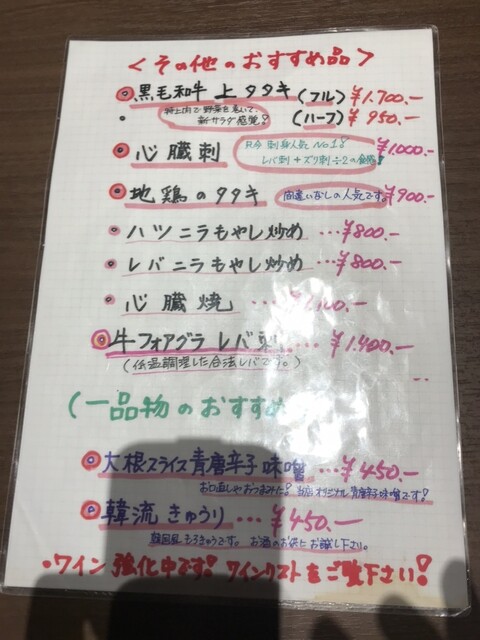 <その他のおすすめ品>
黒毛和牛 上タタキ (フル) ¥1.700.-
特上肉で野菜を巻いて、新サラダ感覚! (ハーフ) ¥950.-
心臓刺 R今 刺身人気 No1! ¥1.000.-
レバ刺+ズリ刺÷2の食感!
地鶏のタタキ 間違いなしの人気です ¥900.-
ハツニラもやし炒め …¥800.-
レバニラもやし炒め …¥800.-
心臓焼 …
牛フォアグラレバ刺 …¥1.400.-
(低温調理した合法レバです。)
(一品物のおすすめ
大根スライス青唐辛子味噌 …¥450.-
お口直しやおつまみに! 当店オリジナル青唐辛子味噌です!
韓流きゅうり …¥450.-
韓国風もろきゅうです。お酒のお供にお試し下さい。
・ワイン強化中です! ワインリストをご覧下さい!